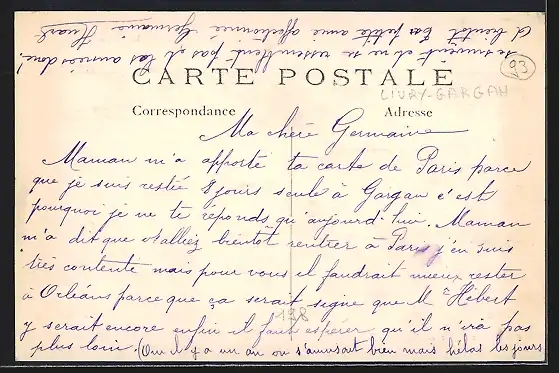 CARTE POSTALE
93
LIVRY-GARGAN
Correspondance Adresse
Ma chère Germaine
Maman m'a apporté ta carte de Paris parce
que je suis restée 8 jours seule à Gargan c'est
pourquoi je ne te réponds qu'aujourd'hui. Maman
m'a dit que alliez bientôt rentrer à Paris j'en suis
très contente mais pour vous il faudrait mieux rester
à Orléans parce que ça serait signe que Mr Hébert
y serait encore enfin il faut espérer qu'il n'ira pas
198
plus loin. (Oui il y a un an on s'amusait bien mais hélas les jours
se suivent et ne se ressemblent pas et les années donc!
A bientôt ta petite amie affectionnée Germaine